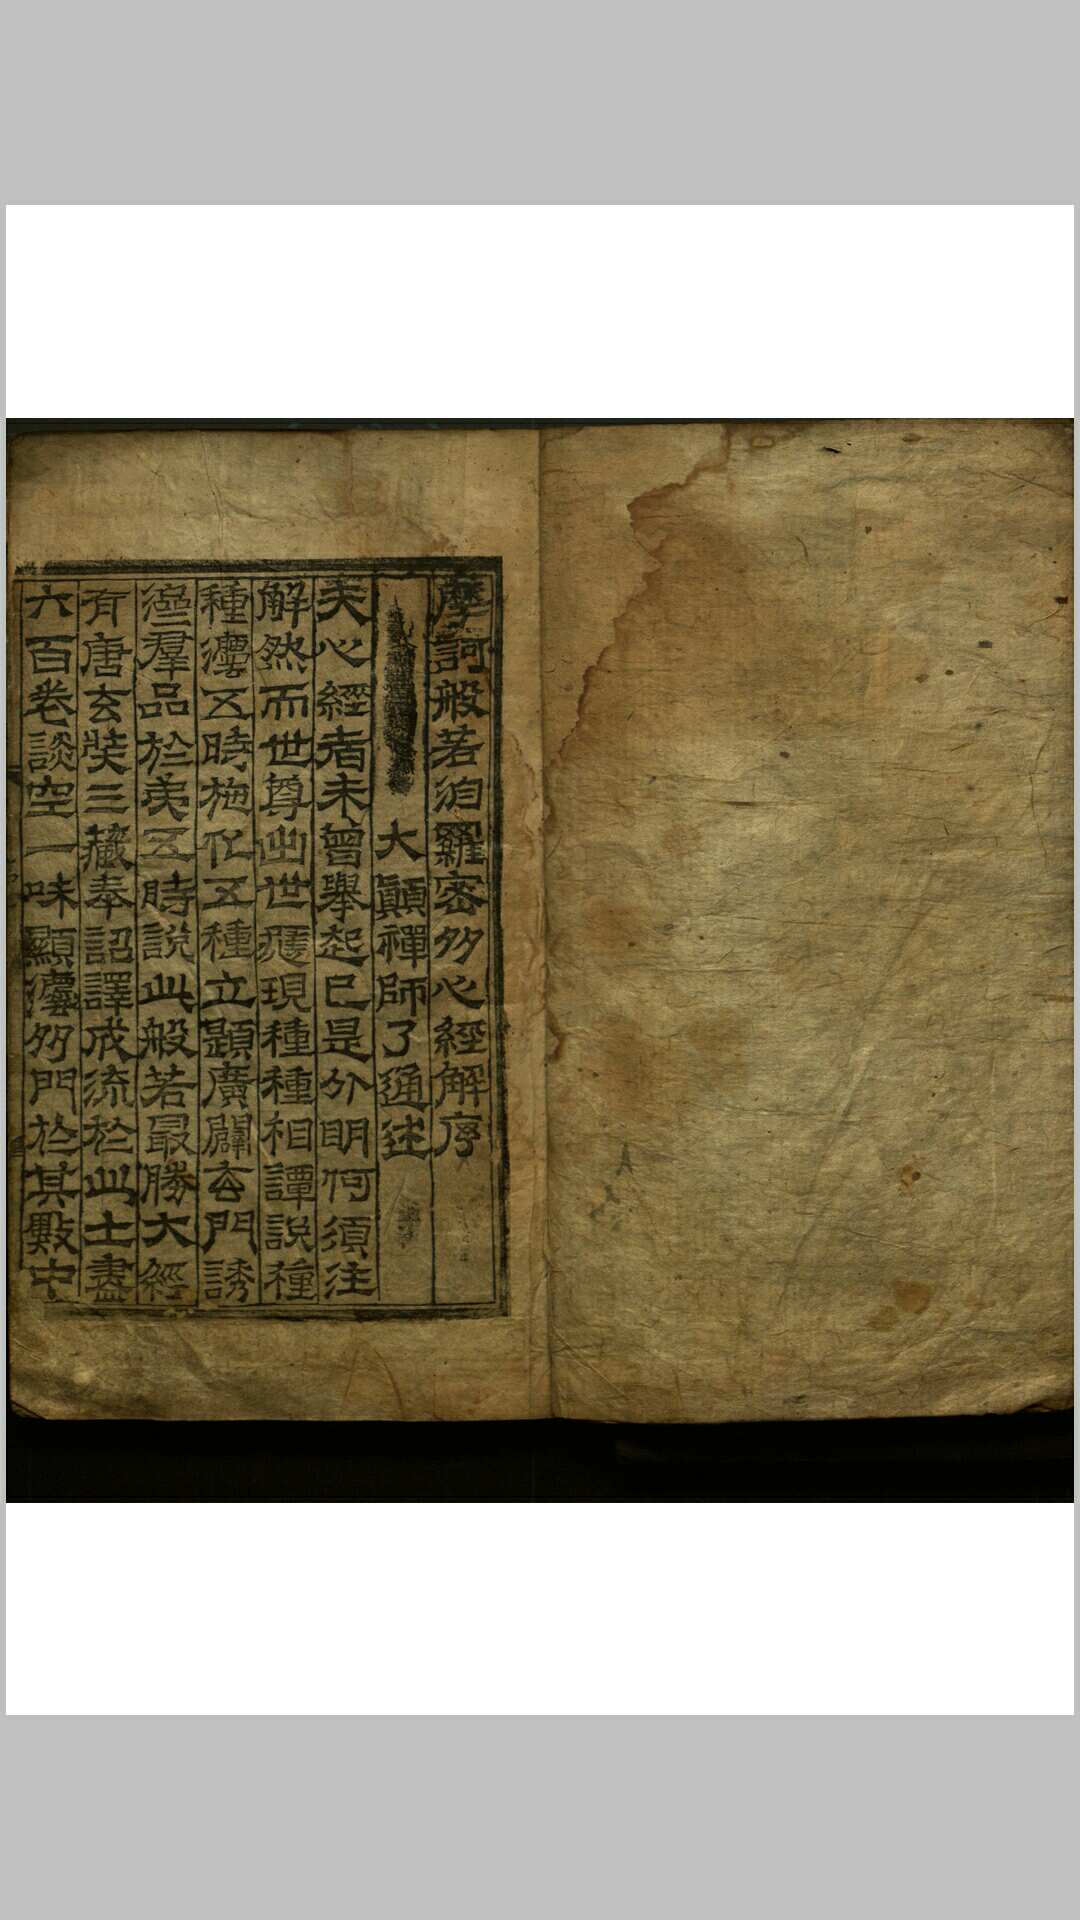 摩訶般若波羅密多心經解序
大顚禪師了通述
夫心經者未曾擧起已是分明何須注
解然而世尊出世應現種種相譚說種
種灋五時施化五種立題廣闢玄門誘
羣品於第五時說此般若最勝大經
有唐玄奘三藏奉詔譯成流於此土盡
六百卷談空一味顯灋多門於其數中